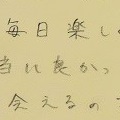 毎日楽し
当に良かっ
会えるの